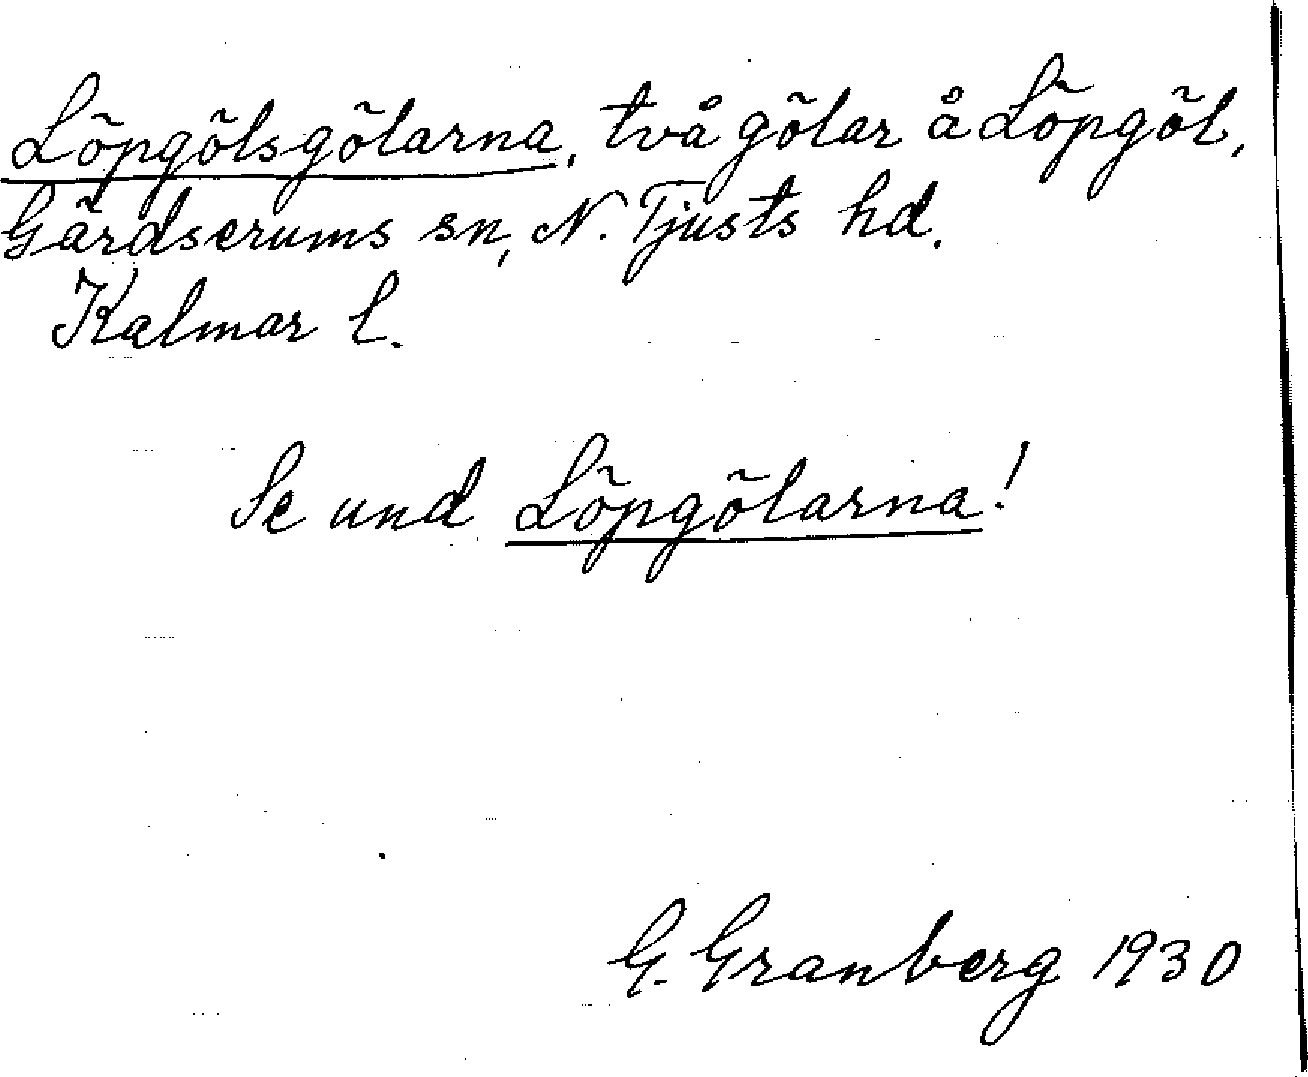 Löpgölsgölarna, två gölar å Löpgöl,
Gärdserums sn, N. Tjusts hd.
Kalmar l.
Se und Löpgölarna!
G. Granberg 1930